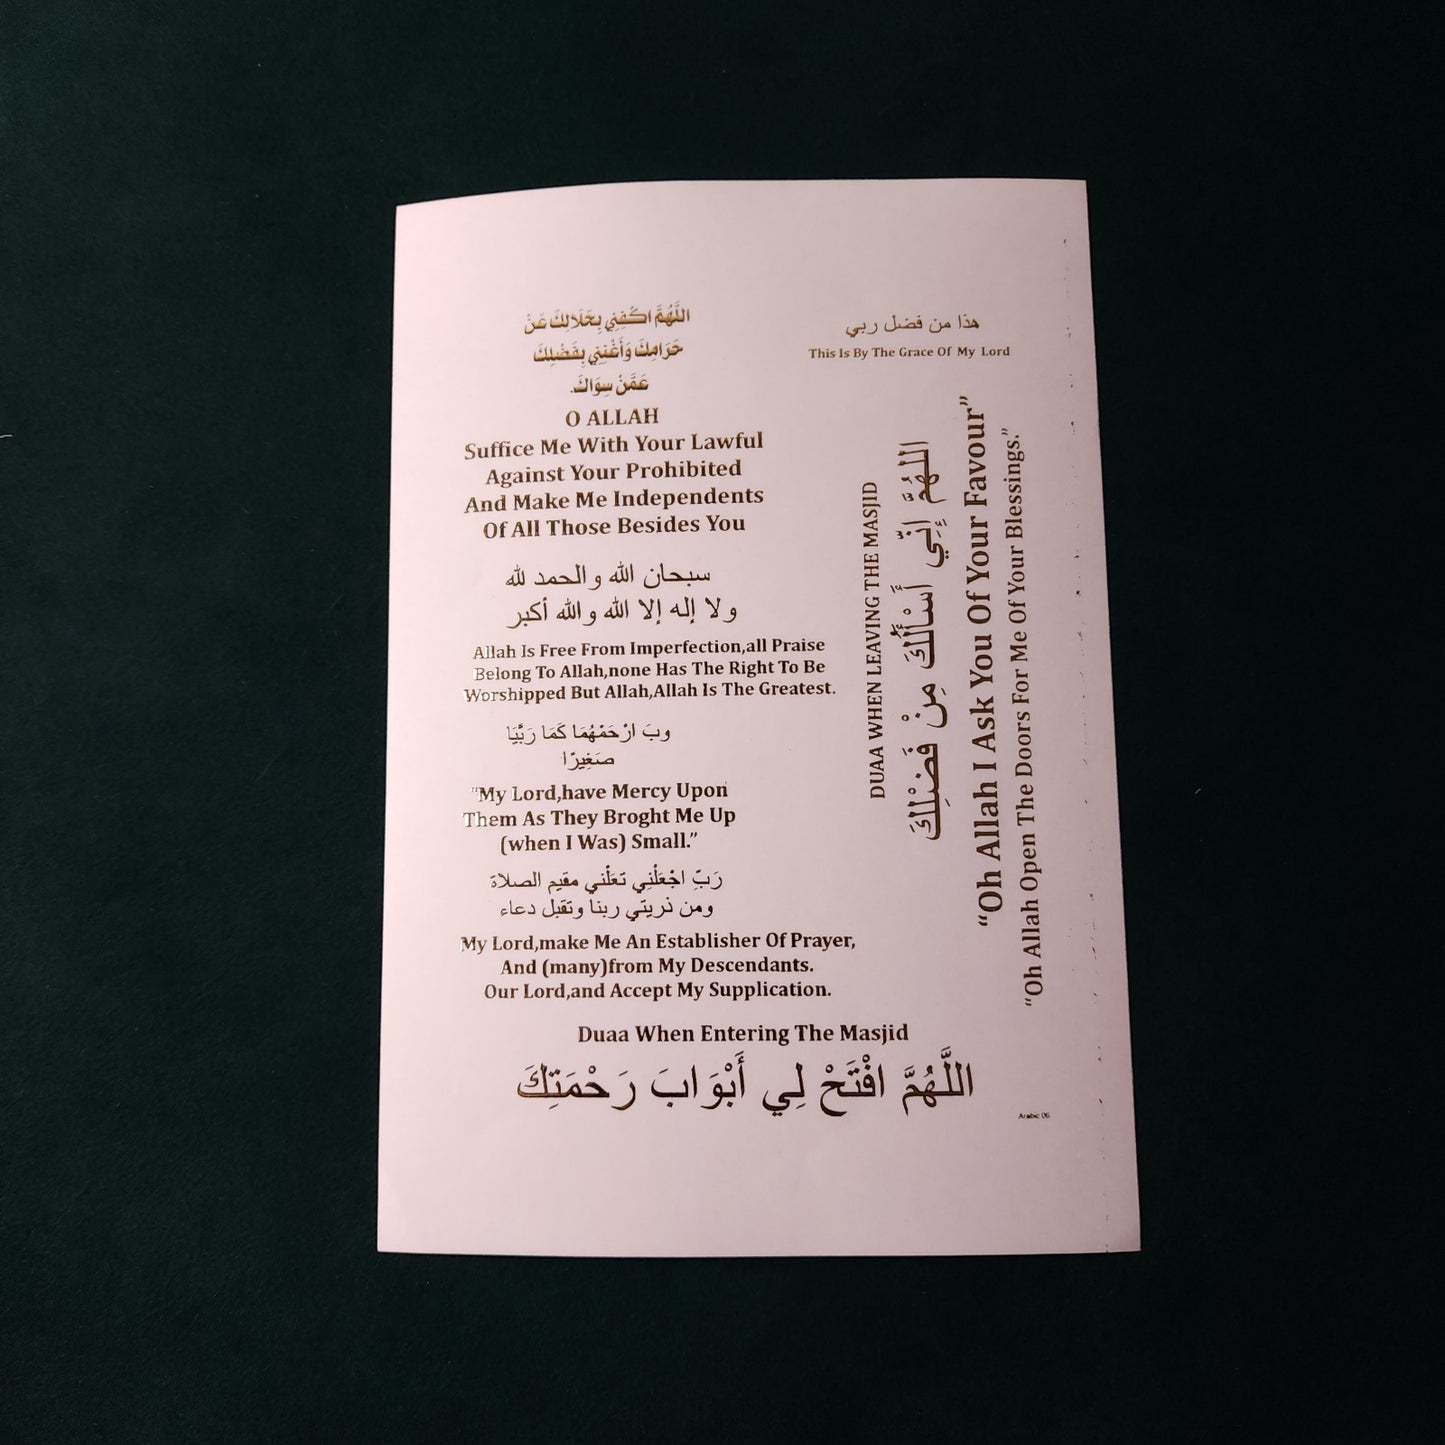 اللَّهُمَّ اكْفِنِي بِحَلَالِكَ عَنْ
حَرَامِكَ وَأَغْنِنِي بِفَضْلِكَ
عَمَّنْ سِوَاكَ.
O ALLAH
Suffice Me With Your Lawful
Against Your Prohibited
And Make Me Independents
Of All Those Besides You
سبحان الله والحمد لله
ولا إله إلا الله والله أكبر
Allah Is Free From Imperfection,all Praise
Belong To Allah,none Has The Right To Be
Worshipped But Allah,Allah Is The Greatest.
وبَ ارْحَمْهُمَا كَمَا رَبَّيَا
صَغِيرًا
"My Lord,have Mercy Upon
Them As They Broght Me Up
(when I Was) Small."
رَبِّ اجْعَلْنِي تعَلْني مقيم الصلاة
ومن ذريتي ربنا وتقبل دعاء
My Lord,make Me An Establisher Of Prayer,
And (many)from My Descendants.
Our Lord,and Accept My Supplication.
هذا من فضل ربي
This Is By The Grace Of My Lord
DUAA WHEN LEAVING THE MASJID
اللهُمَّ إِنِّي أَسْأَلُكَ مِنْ فَضْلِكَ
"Oh Allah I Ask You Of Your Favour"
"Oh Allah Open The Doors For Me Of Your Blessings."
Duaa When Entering The Masjid
اللَّهُمَّ افْتَحْ لِي أَبْوَابَ رَحْمَتِكَ
Arabic 06